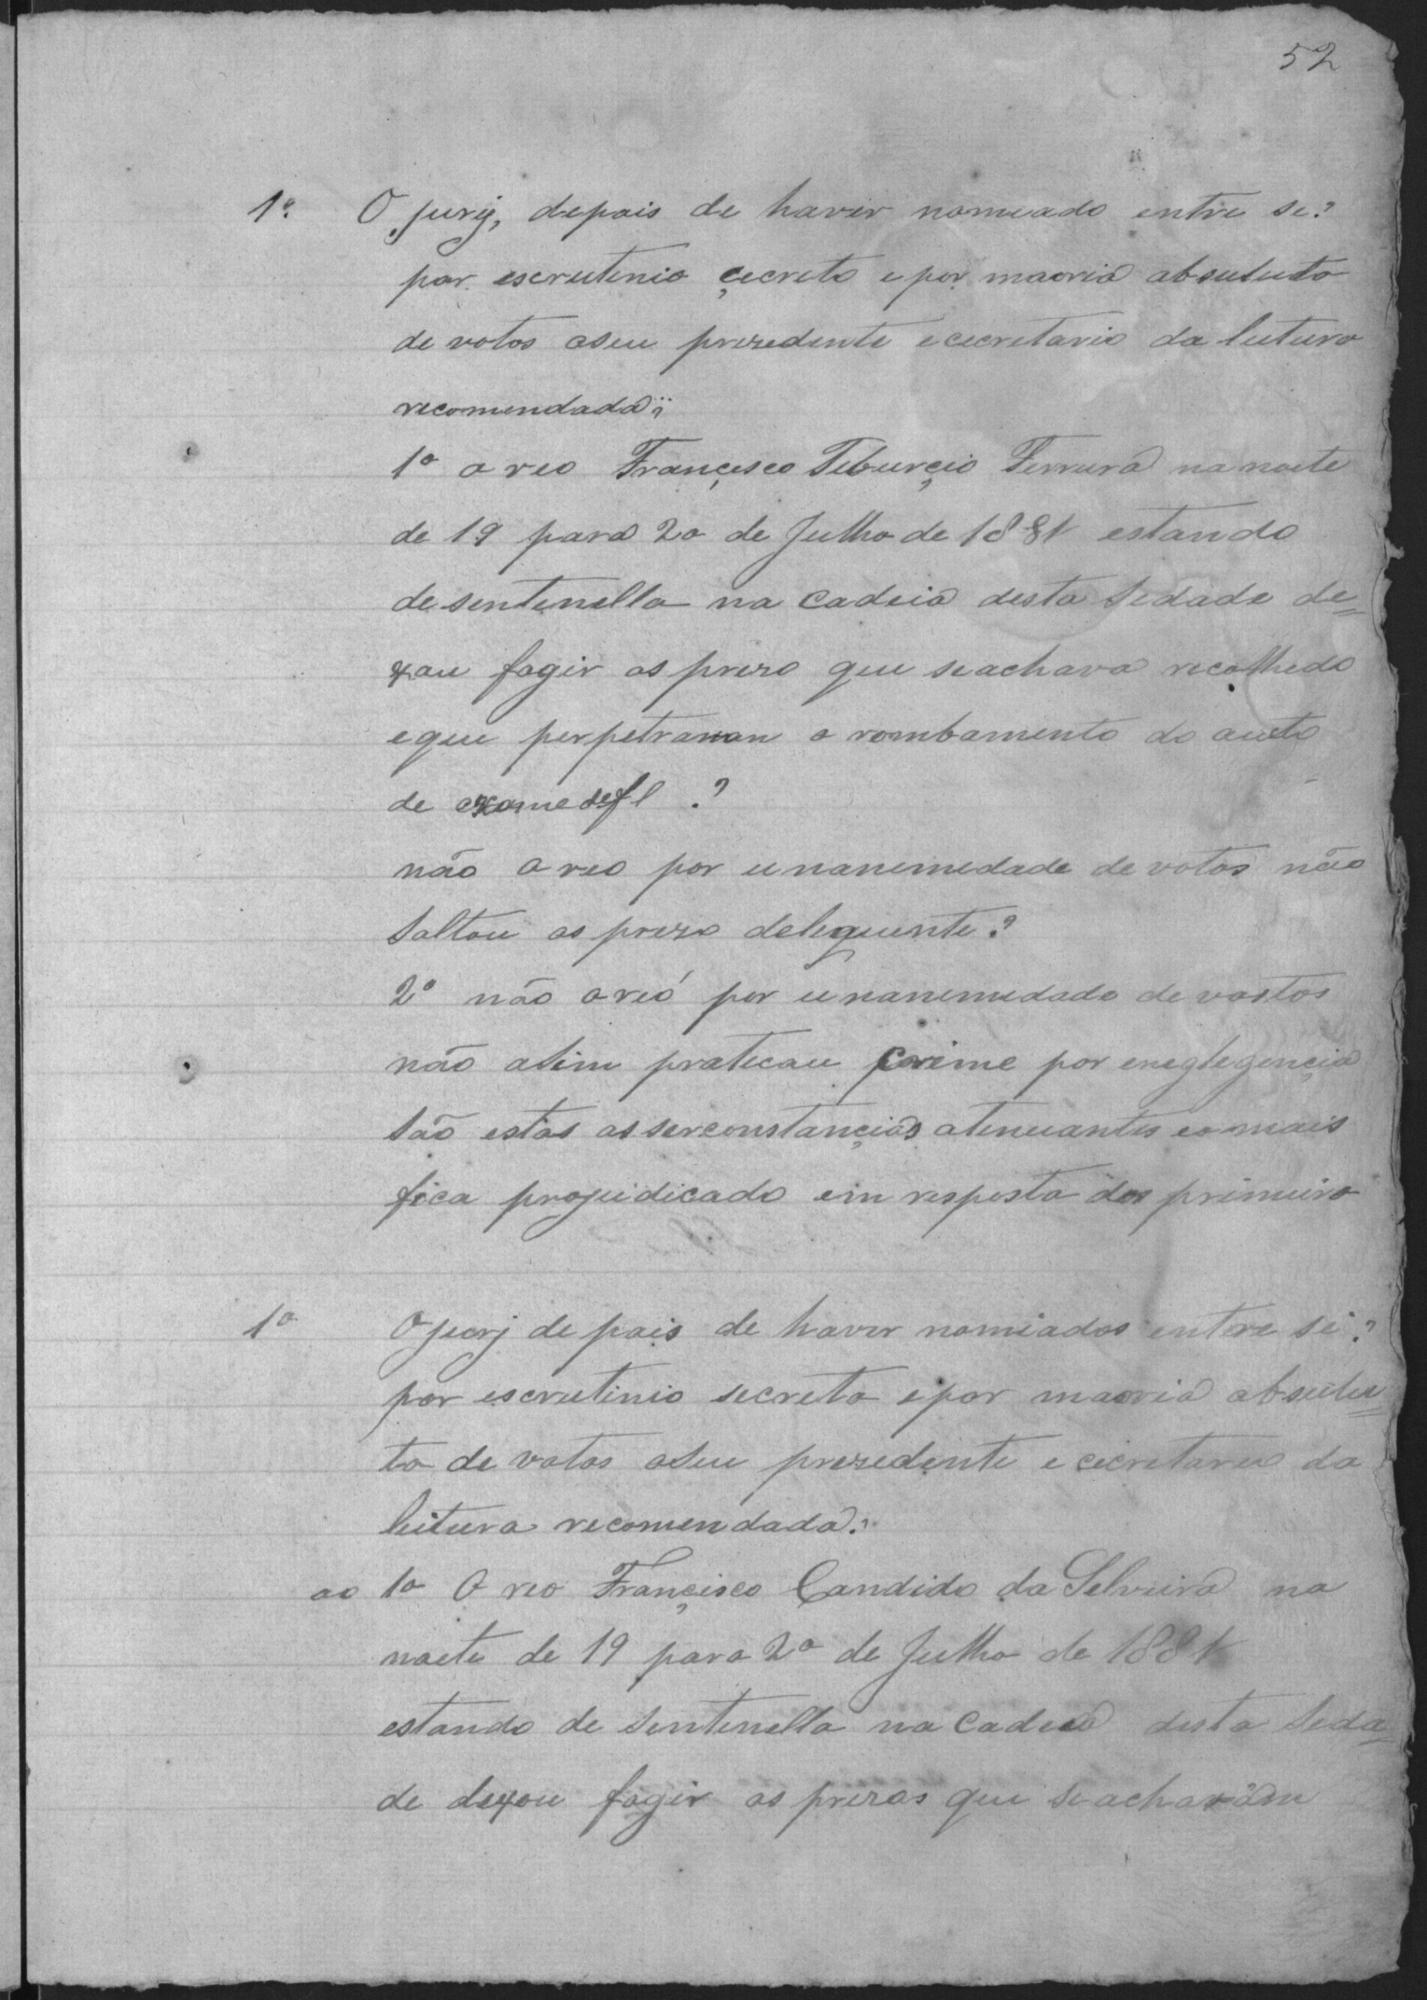 52
1º. O jury, depois de haver nomeado entre se?
por escrutenio çecreto e por maoria absuluto
de votos aseu prezedente e cecretario da leitura
recomendada;
1º o reo Françisco Teburçio Ferreira na noite
de 19 para 20 de Julho de 1881 estando
de sentenella na Cadeia desta Sedade de=
xou fogir os prezo que seachava recolhedo
eque perpetraran o rombamento do auto
de exame defl .?
não o reo por eunanemedade de votos não
Soltou os prezo delequente?
2º não oreó por eunanemedade de vostos
não asim pratecou crime por eneglegençia
São estas asserconstançias atenuantes eomais
fica projuidicado em resposta dos primeiro
1º O jurj depois de haver nomiados entre si?
por escrutinio secreto e por maoria absulu=
to de votos oSeu prezedente e cecretareo da
leitura recomendada?
ao 1º O reo Françisco Candido da Selveira na
noete de 19 para 2º de Julho de 1881
estando de Sentenella na Cadeia desta Seda=
de dexou fogir os prezos que se achavam